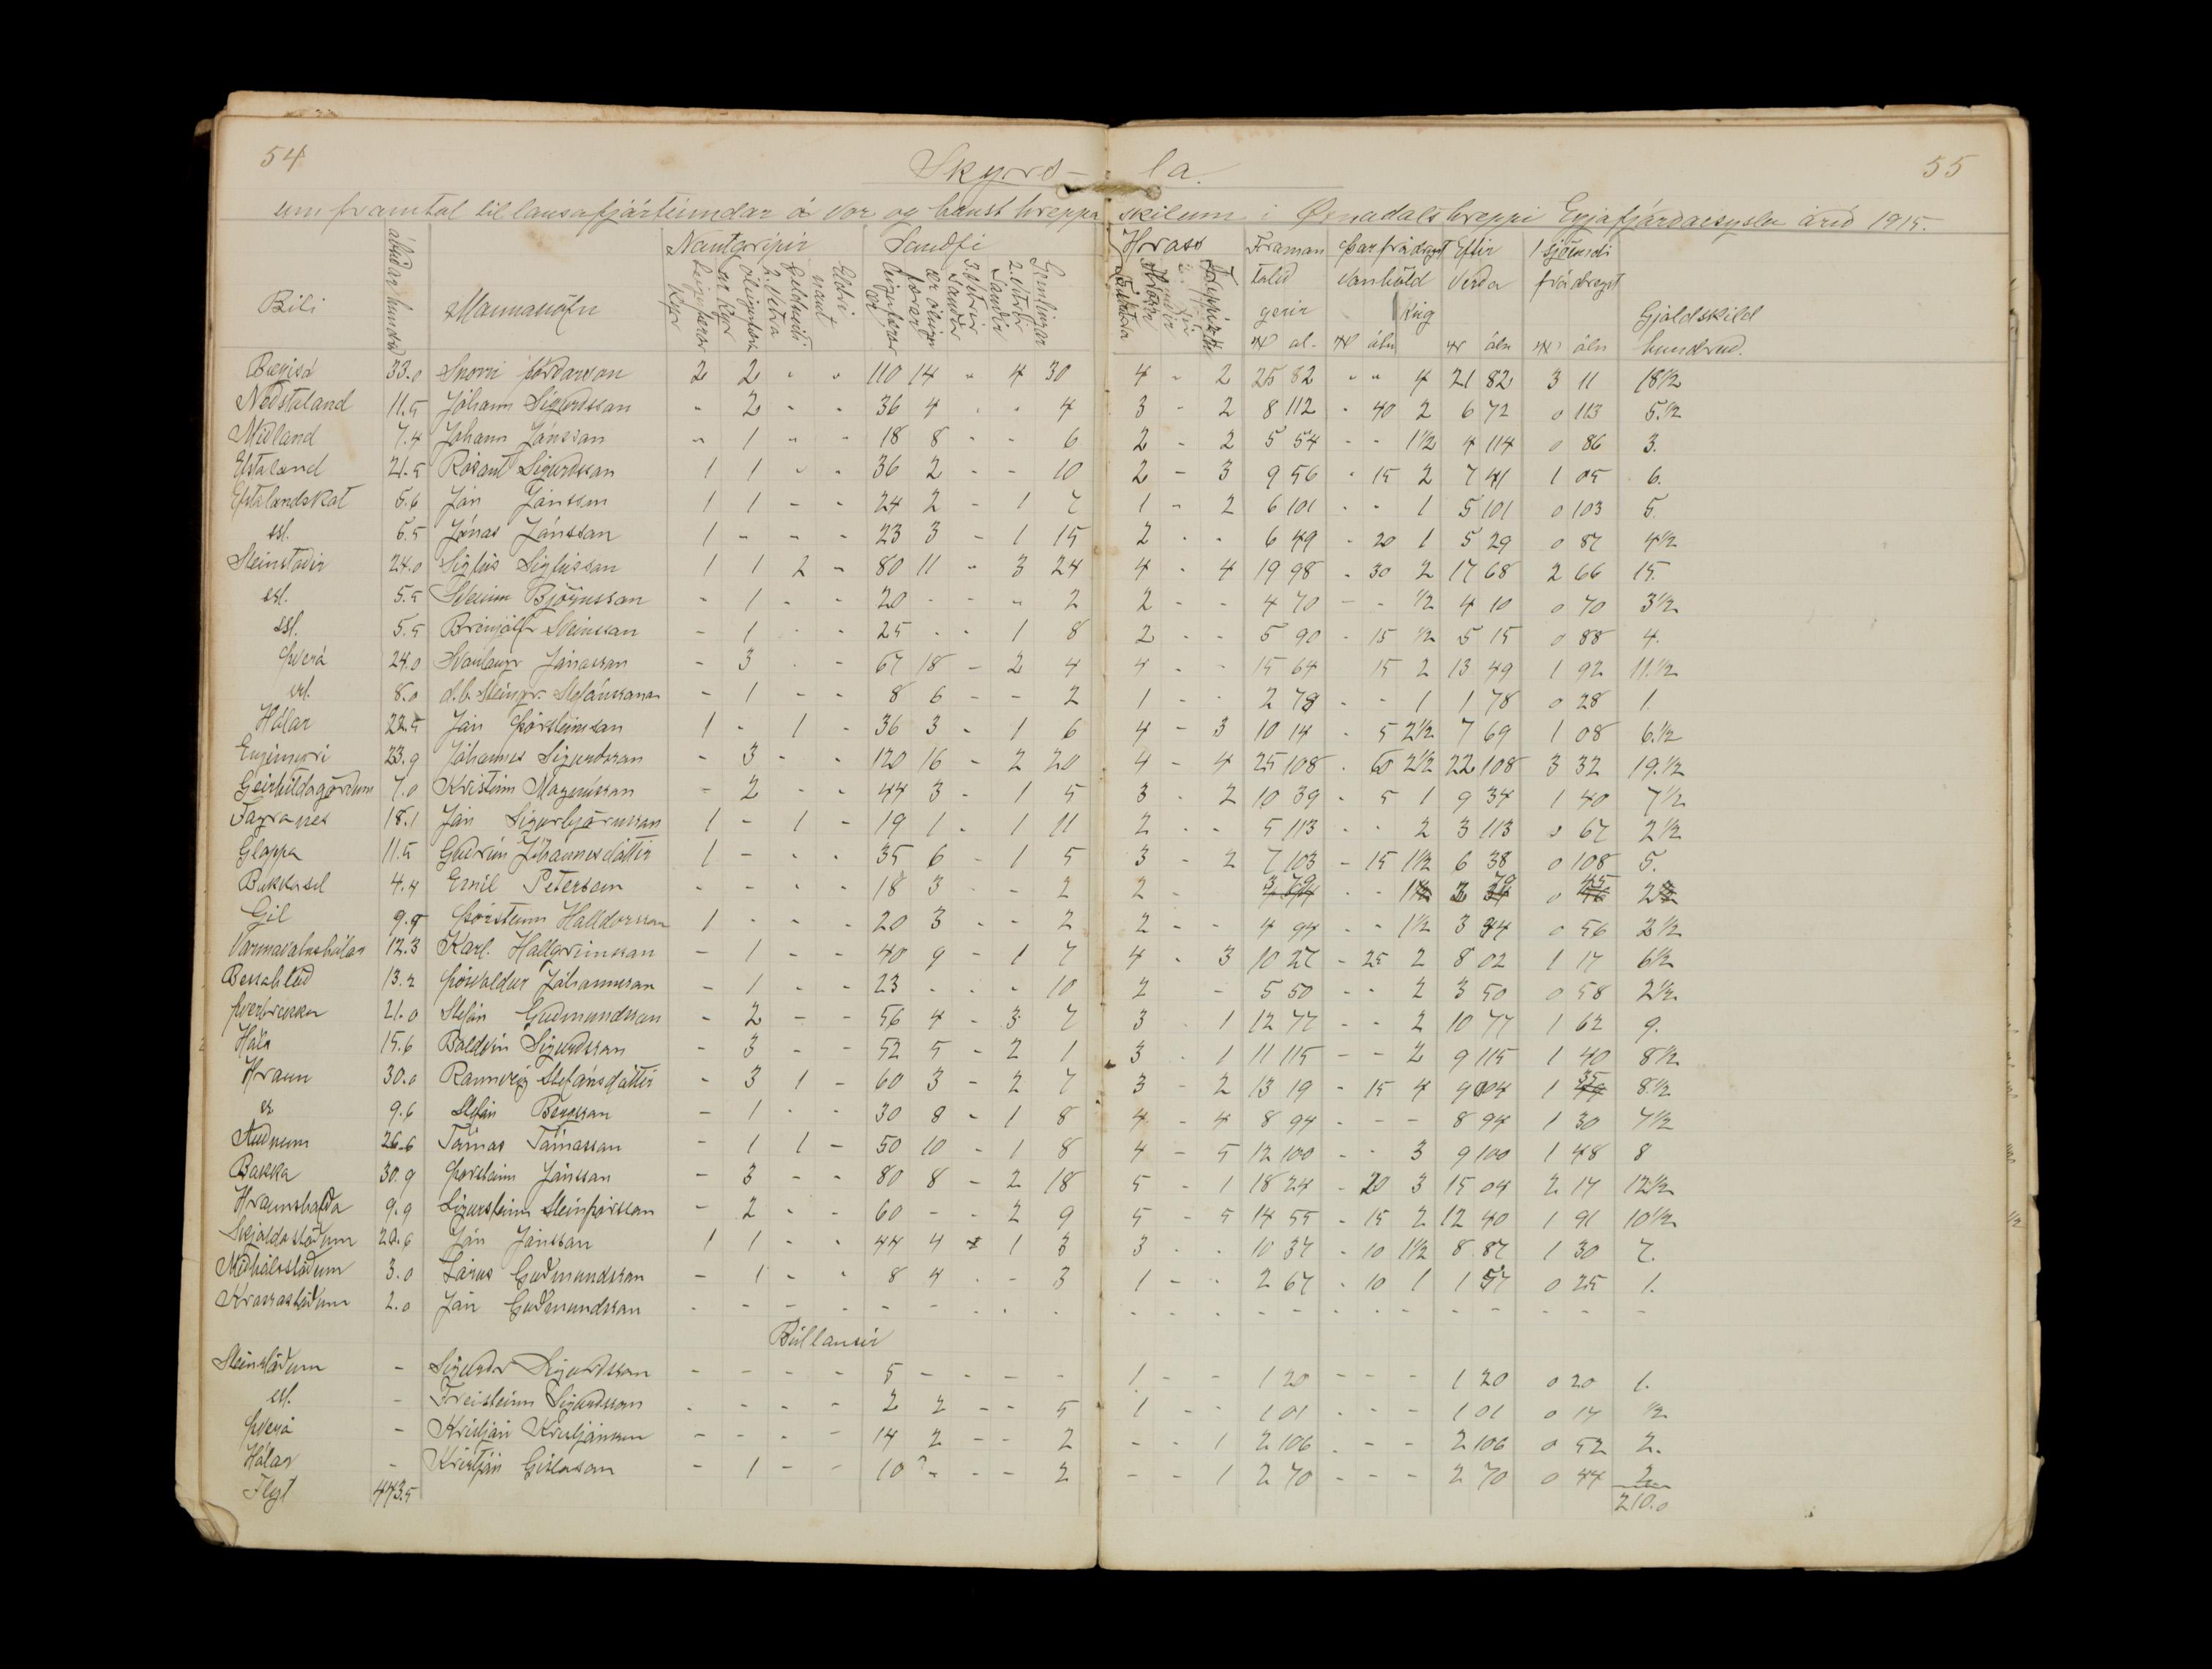 54
55
Skyrs-la.
um framtal til lausafjártíundar á vor og haust hreppaskilum í Øxnadalshreppi Eyjafjarðarsyslu árið 1915.
Nautgripir Sauðfé Hross Framan Þar frádregst Eftir 1 sjöundi
talið vanhöld verða frádregst
Bæli ábúðar hundrað Mannanöfn gerir Kúg Gjaldskild
al. áln áln áln hundrað.
Bægisá 33.0 Snorri Þórðarson 2 2 - - 110 14 - 4 30 4 - 2 25 82 - - 4 21 82 3 11 18½
Neðstaland 11.5 Jóhann Sigurðsson - 2 - - 36 4 - - 4 3 - 2 8 112 - 40 2 6 72 0 113 5.½
Miðland 7.4 Jóhann Jónsson - 1 - - 18 8 - - 6 2 - 2 5 54 - - 1½ 4 114 0 86 3.
Efstaland 21.5 Rósant Sigurðsson 1 1 - - 36 2 - - 10 2 - 3 9 56 - 15 2 7 41 1 05 6.
Efstalandskot 5.6 Jón Jónsson 1 1 - - 24 2 - 1 7 1 - 2 6 101 - - 1 5 101 0 103 5.
ssl. 6.5 Jónas Jónsson 1 - - - 23 3 - 1 15 2 - - 6 49 - 20 1 5 29 0 87 4½
Steinstaðir 24.0 Sigfús Sigfússon 1 1 2 - 80 11 - 3 24 4 - 4 19 98 - 30 2 17 68 2 66 15.
ssl. 5.5 Sveinn Björnsson - 1 - - 20 - - - 2 2 - - 4 70 - - ½ 4 10 0 70 3½
ssl. 5.5 Brinjólfr Steinsson - 1 - - 25 - - 1 8 2 - - 5 90 - 15 ½ 5 15 0 88 4.
Þverá 24.0 Svanlaugr Jónasson - 3 - - 67 18 - 2 4 4 - - 15 64 15 2 13 49 1 92 11.½
ssl. 8.0 d.b. Steingr. Stefánssonar - 1 - - 8 6 - - 2 1 - 2 78 - - 1 1 78 0 28 1.
Hólar 22.5 Jón Þorsteinsson 1 - 1 - 36 3 - 1 6 4 - 3 10 14 - 5 2½ 7 69 1 08 6.½
Engimyri 23.9 Jóhannes Sigurðsson - 3 - - 120 16 - 2 20 4 - 4 25 108 - 60 2½ 22 108 3 32 19.½
Geirhildagörðum 7.0 Kristinn Magnússon - 2 - - 44 3 - 1 5 3 - 2 10 39 - 5 1 9 34 1 40 7½
Fagranes 18.1 Jón Sigurbjörnsson 1 - 1 - 19 1 - 1 11 2 - - 5 113 - - 2 3 113 0 67 2½
Gloppa 11.5 Guðrún Jóhannesdóttir 1 - - - 35 6 - 1 5 3 - 2 7 103 - 15 1½ 6 38 0 108 5.
Bakkasel 4.4 Emil Petersen - - - - 18 3 - - 2 2 - 3 79 - - 1 2 79 0 45 2
Gil 9.9 Þorsteinn Halldorsson 1 - - - 20 3 - - 2 2 - - 4 94 - - 1½ 3 34 0 56 2½
Varmavatnshólar 12.3 Karl Hallgrimsson - 1 - - 40 9 - 1 7 4 - 3 10 27 - 25 2 8 02 1 17 6½
Bessahlöð 13.2 Þorvaldur Jóhannsson - 1 - - 23 - - - 10 2 - 5 50 - - 2 3 50 0 58 2½
Þverbrekka 21.0 Stefán Guðmundsson - 2 - - 56 4 - 3 7 3 - 1 12 77 - - 2 10 77 1 62 9.
Háls 15.6 Baldvin Sigurðsson - 3 - - 52 5 - 2 1 3 - 1 11 115 - - 2 9 115 1 40 8½
Hraun 30.0 Rannveig Stefánsdóttir - 3 1 - 60 3 - 2 7 3 - 2 13 19 - 15 4 9 004 1 35 8.½
9.6 Stefán Bergsson - 1 - - 30 8 - 1 8 4 - 4 8 94 - - - 8 94 1 30 7½
Auðnum 26.6 Tómas Tómasson - 1 1 - 50 10 - 1 8 4 - 5 12 100 - - 3 9 100 1 48 8
Bakka 30.9 Þorsteinn Jónsson - 3 - - 80 8 - 2 18 5 - 1 18 24 - 20 3 15 04 2 17 12½
Hraunshöfða 9.9 Sigursteinn Steinþórsson - 2 - - 60 - - 2 9 5 - 5 14 55 - 15 2 12 40 1 91 10½
Skjaldastöðum 20.6 Jón Jónsson 1 1 - - 44 4 - 1 3 3 - - 10 37 - 10 1½ 8 87 1 30 7.
Miðhálsstöðum 3.0 Lárus Guðmundsson - 1 - - 8 4 - - 3 1 - - 2 67 - 10 1 1 57 0 25 1.
Krossastöðum 2.0 Jón Guðmundsson - - - - - - - - - - - - - - - - - - - - - -
Búlausir
Steinstöðum - Sigurðr Sigurðsson - - - - 5 - - - - 1 - - 1 20 - - - 1 20 0 20 1.
ssl. - Freisteinn Sigurðsson - - - - 2 2 - - 5 1 - - 1 01 - - - 1 01 0 17 ½
Þverá - Kristján Kristjánsson - - - - 14 2 - - 2 - - 1 2 106 - - - 2 106 0 52 2.
Hólar - Kristján Gíslason - 1 - - 10 - - - 2 - - 1 2 70 - - - 2 70 0 44 2
Flyt 443.5 210.0